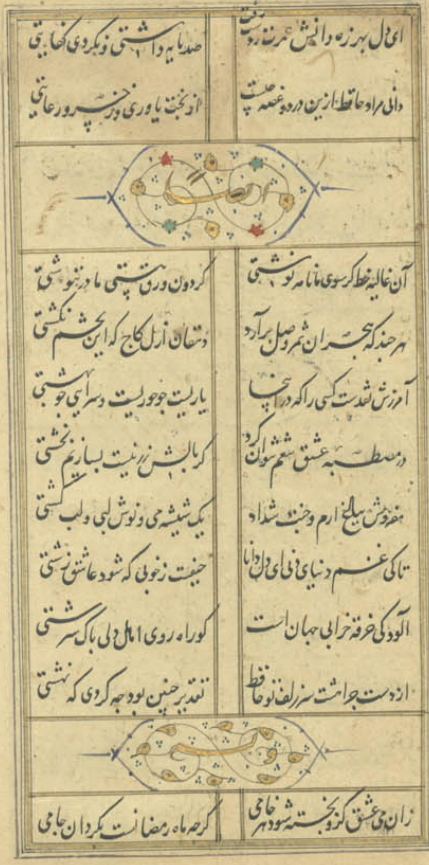 ای دل بهرزه دانش عمرت رفت صد مایه داشتی و نکردی کفایتی
دانی مراد حافظ ازین درد و غصه چیست از بخت یاوری و ز خسرو رعایتی
آن غالیه خط گر سوی ما نامه نوشتی گردون ورق هستی ما در ننوشتی
هر چند که هجران ثمر وصل برآرد دهقان ازل کاج که این تخم نکشتی
آمرزش نقدست کسی را که در اینجا یاریست چو حوریست و سرای چو بهشتی
در مصطبه عشق تنعم نتوان کرد گر بالش زر نیست بسازیم بخشتی
مفروش بباغ ارم و نخوت شداد یک شیشه می و نوش لبی و لب کشتی
تا کی غم دنیای دنی ای دل دانا حیفست ز خوبی که شود عاشق زشتی
آلودگی خرقه خرابی جهان است کو راه روی اهل دلی پاک سرشتی
از دست چرا هشت سر زلف تو حافظ تقدیر چنین بود چه کردی که نهشتی
زان می عشق کزو پخته شود هر خامی گرچه ماه رمضانست بگردان جامی